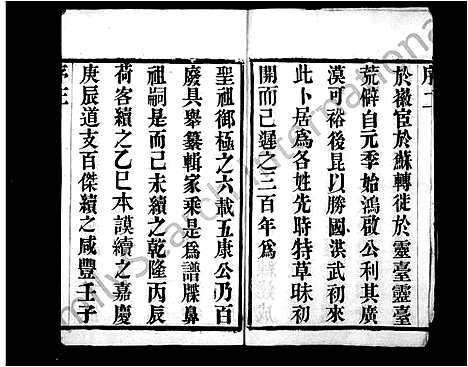 序二
於徽宦於蘇轉徙於靈臺靈臺
荒僻自元季始鴻啟公利其廣
漠可裕後昆以勝國洪武初來
此卜居爲各姓先時特草昧初
開而已遲之三百年爲
聖祖御極之六載五康公乃百
廢具舉纂輯家乘是爲譜牒鼻
祖嗣是而己未續之乾隆丙辰
荷客續之乙巳本謨續之嘉慶
庚辰道支百傑續之咸豐壬子
序三